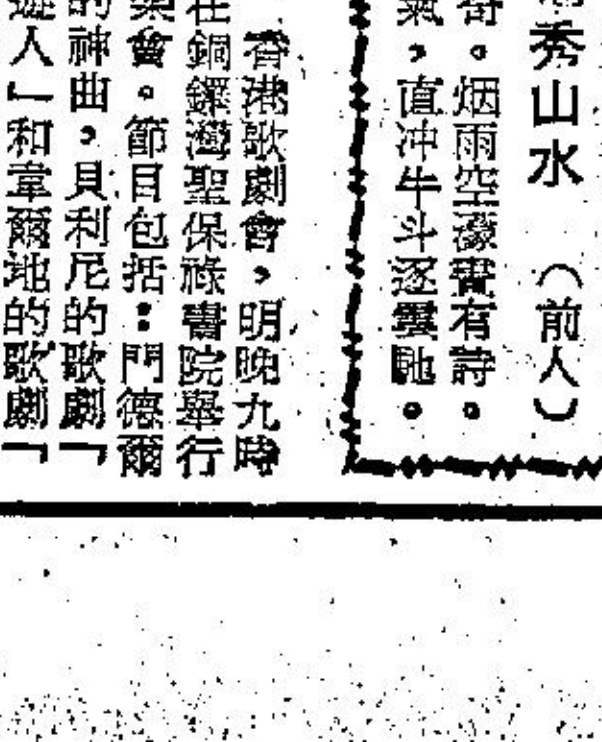 秀山水　（前人）
奇。烟雨空濛書有詩。
氣，直冲牛斗逐雲馳。
香港歌劇會，明晚九時
在銅鑼灣聖保祿書院舉行
樂會。節目包括：門德爾
的神曲，貝利尼的歌劇『
遊人』和韋爾地的歌劇『